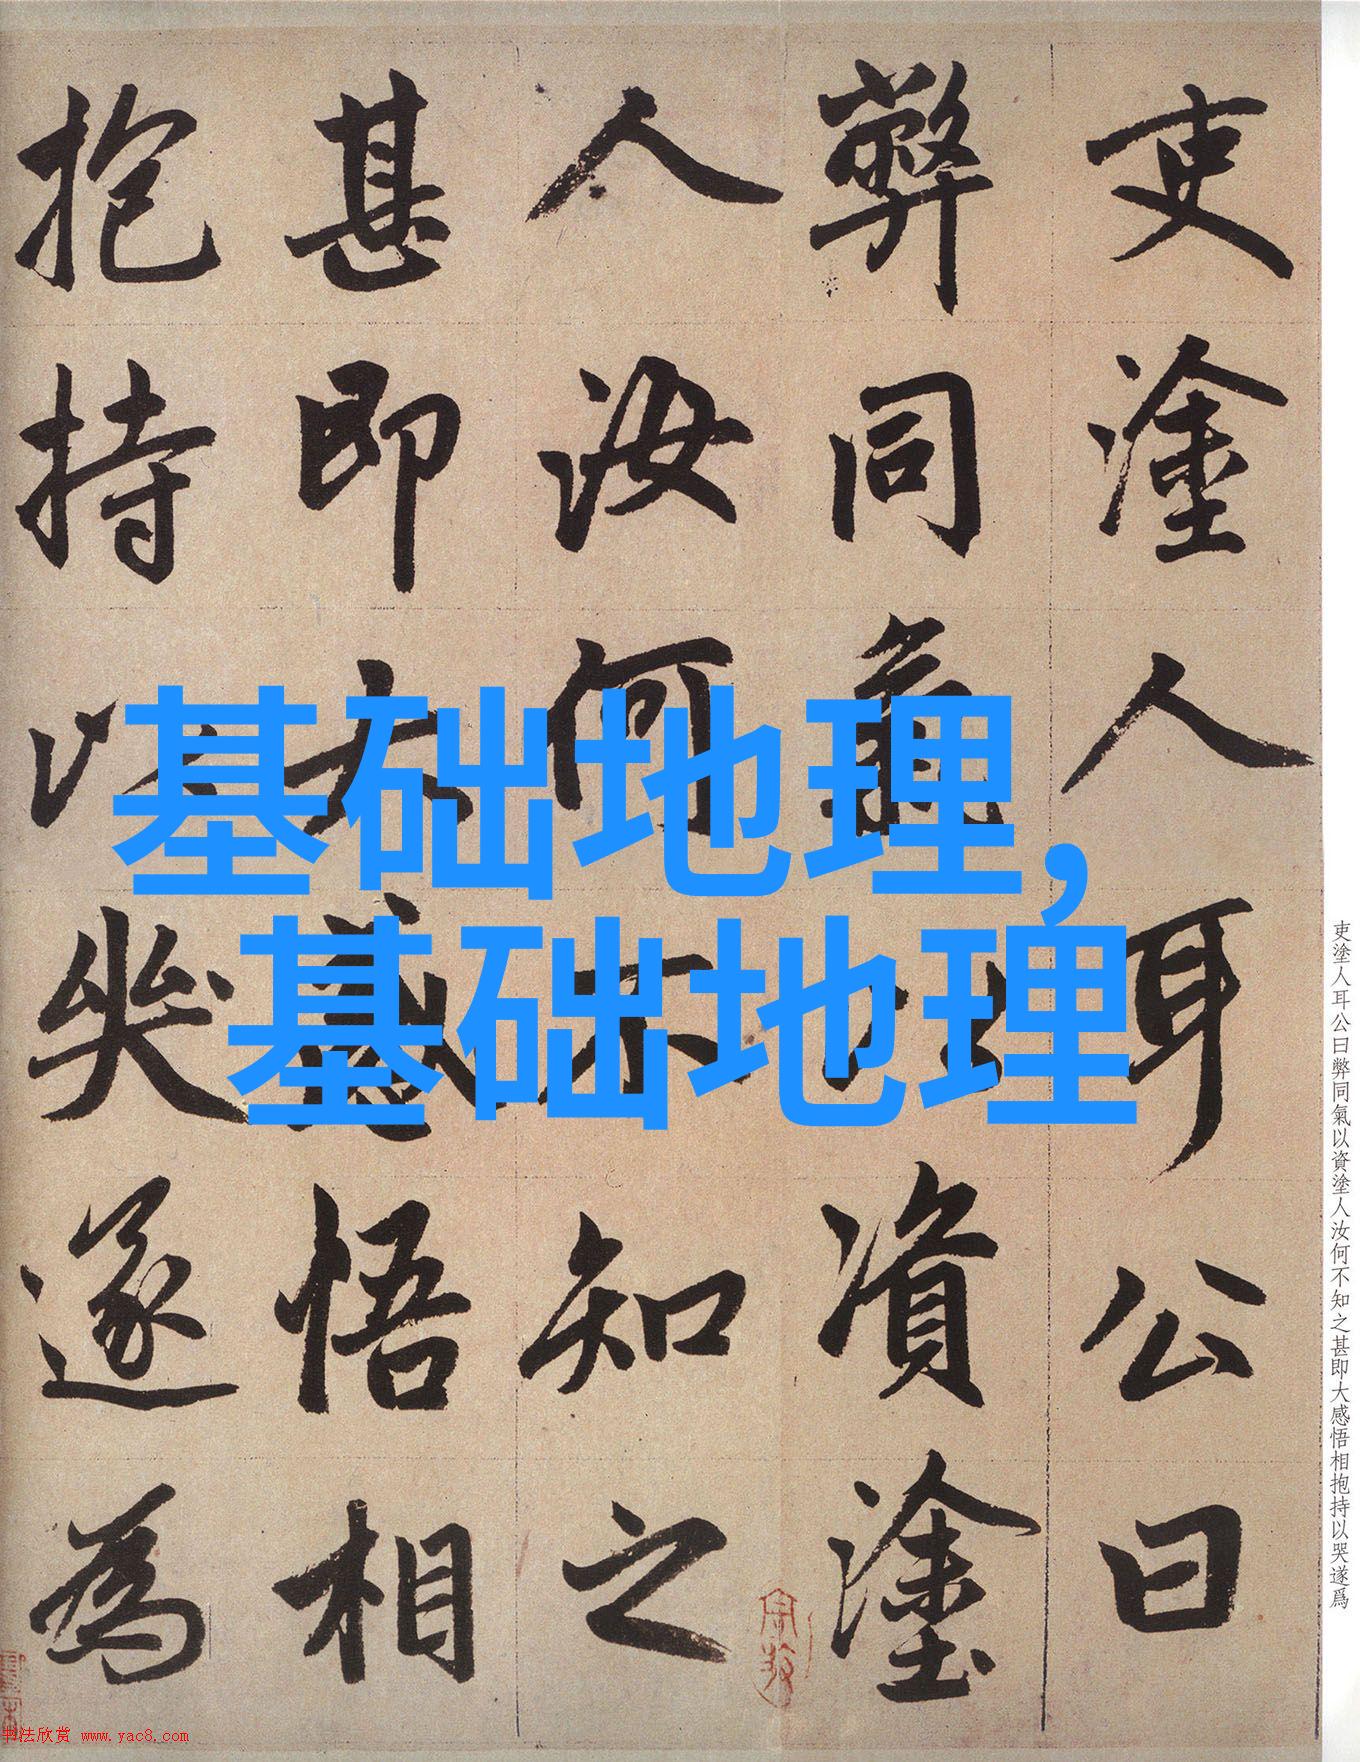 吏塗人耳公曰
弊同氣以資塗
人汝何不知之
甚即大感悟相
抱持以哭遂為
基础地理,
基础地理
吏塗人耳公曰弊同氣以資塗人汝何不知之甚即大感悟相抱持以哭遂爲
书法欣赏 www.yac8.com